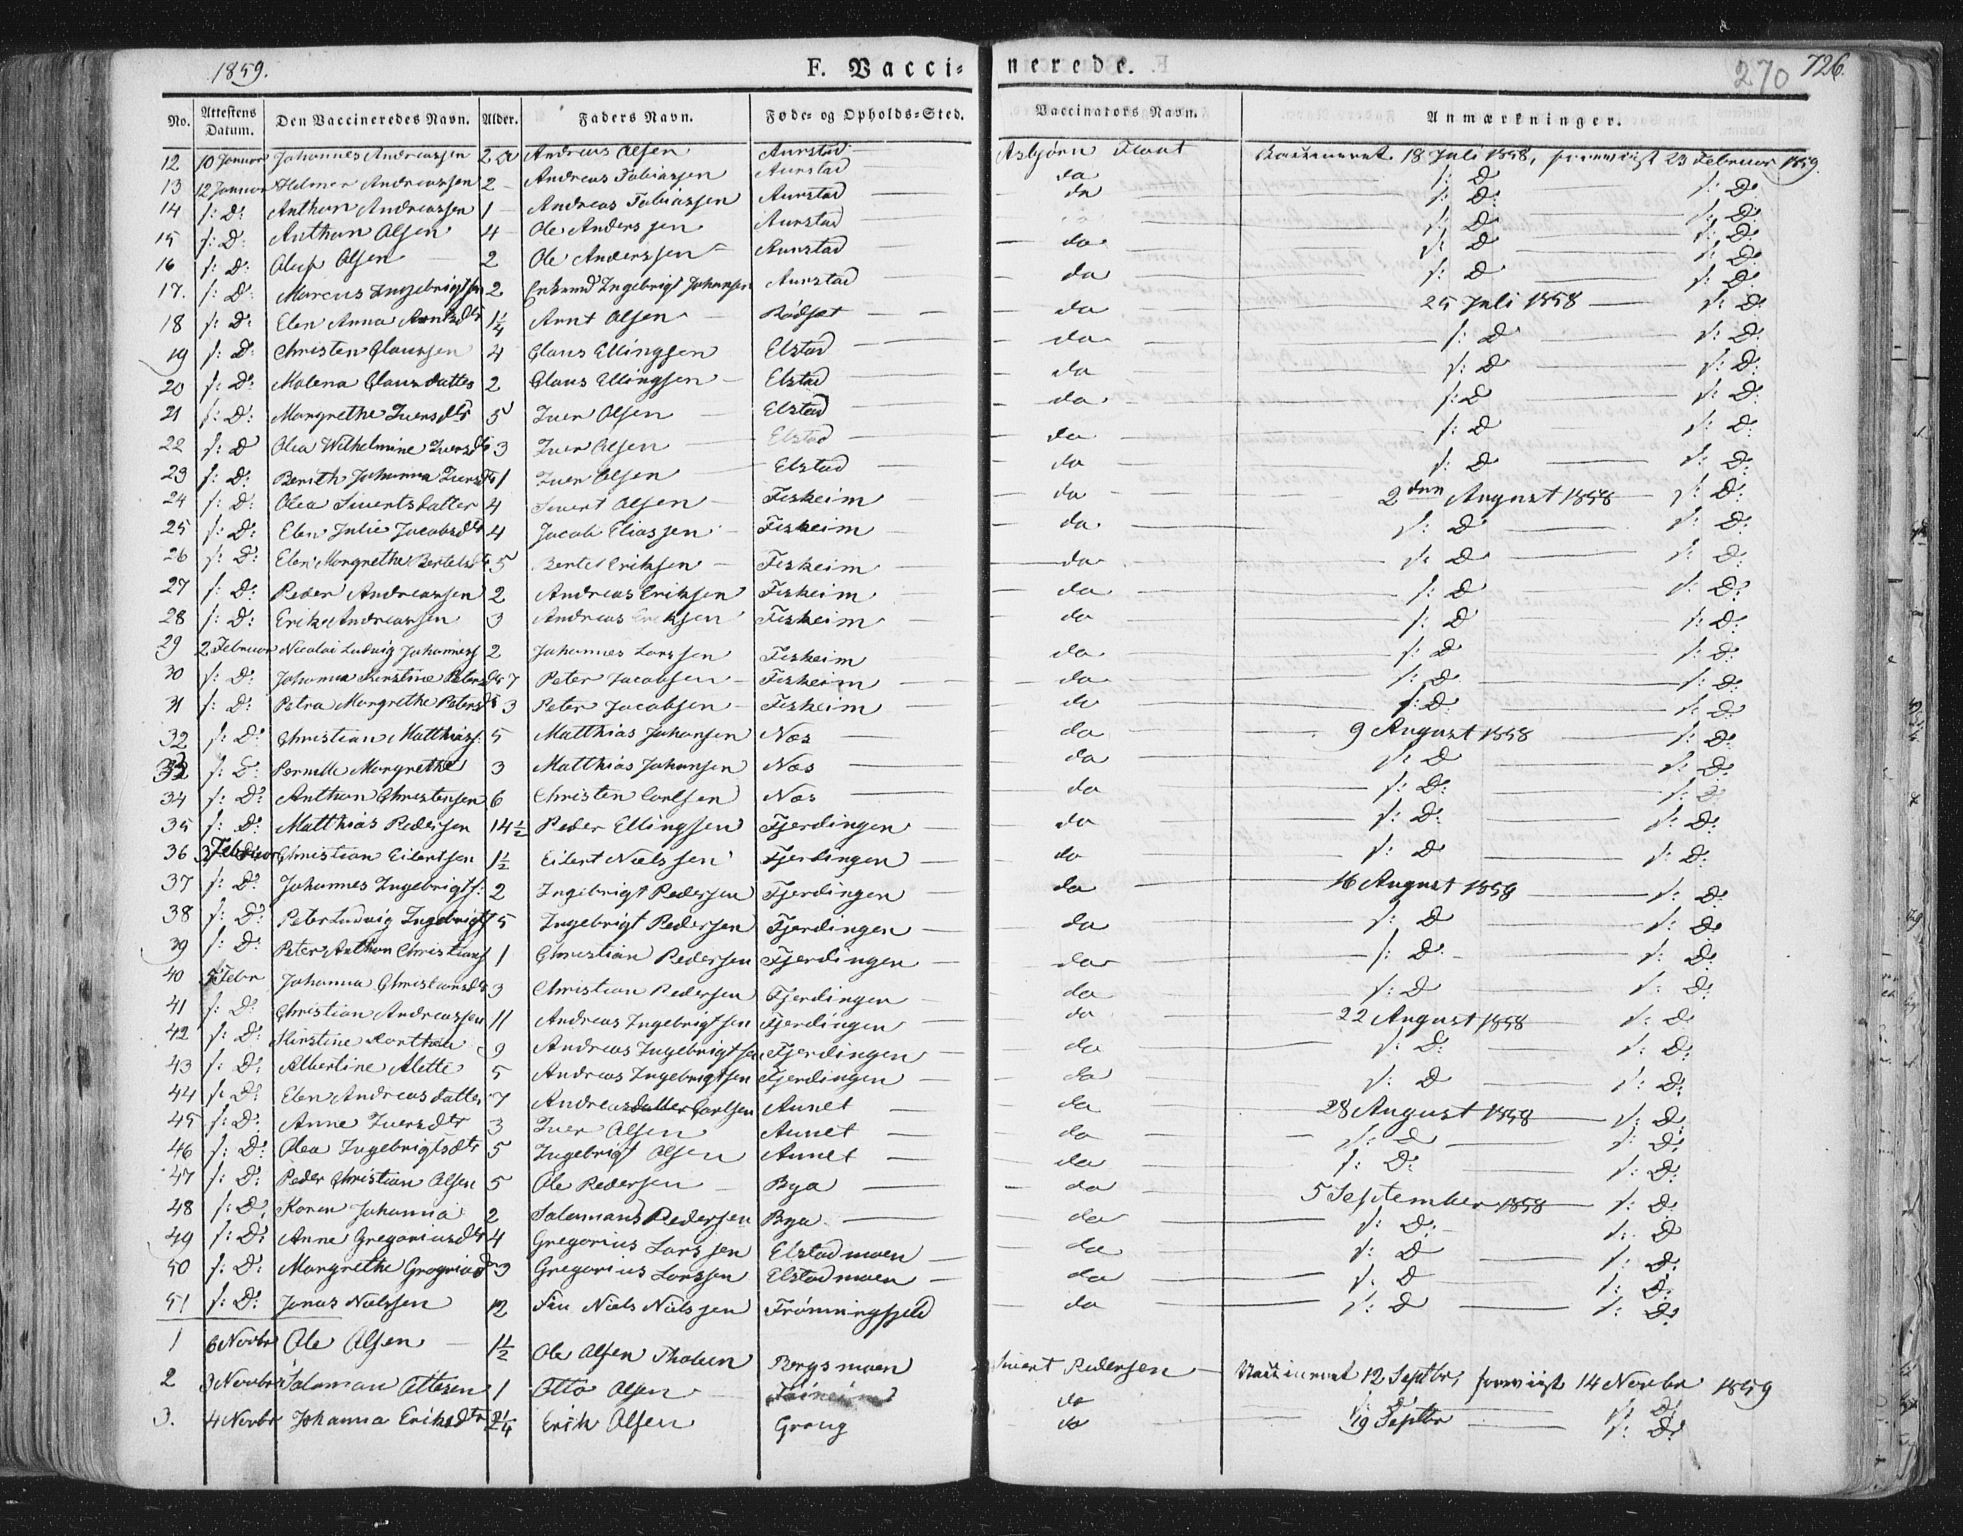 1859. F. Vacci- nerede. 270 726.
No. Attestens Datum. Den Vaccineredes Navn. Alder. Faders Navn. Føde- og Opholds-Sted. Vaccinators Navn. Anmærkninger.
12 10 Januar Johannes Andreassen 2 Andreas Olsen Aunstad Asbjørn Vaccineret 18 Juli 1858, foreviist 23 Februar 1859.
13 12 Januar Helmer Andreassen 2 Andreas Tobiassen Aunstad do s: D s: D:
14 s: D: Anthon Andreassen 1 Andreas Tobiassen Aunstad do s: D: s: D:
15 s: D: Anthon Olsen 4 Ole Anderssen Aunstad s: D s: D:
16 s: D: Olup Olsen 2 Ole Anderssen Aunstad do s: D s: D:
17. s: D: Marcus Ingebrigtsen 2 Enkmd Ingebrigt Johansen Aunstad do s: D s: D:
18 s: D: Elen Anna Arntsdtr 1 1/4 Arnt Olsen Rødset do 25 Juli 1858 s: D:
19 s: D: Christen Claussen 4 Claus Ellingsen Elstad do s: D s: D:
20 s: D: Malena Clausdatter 2 Claus Ellingsen Elstad do s: D s: D:
21 s: D: Margrethe Iversdtr 5 Iver Olsen Elstad do s: D s: D:
22 s: D Olea Wilhelmine Iversdtr 3 Iver Olsen Elstad do s: D s: D:
23 s: D: Berith Johanna Iversdtr 1 Iver Olsen Elstad do s: D s: D:
24 s: D: Olea Sivertsdatter 4 Sivert Olsen Fiskeim do 2den August 1858 s: D:
25 s: D: Elen Julie Jacobsdtr 4 Jacob Eliassen Fiskeim do s: D s: D:
26 s: D: Elen Margrethe Bertelsdtr 5 Bertel Eriksen Fiskeim do s: D s: D:
27 s: D: Peder Andreassen 2 Andreas Eriksen Fiskeim do s: D s: D:
28 s: D: Erik Andreassen 3 Andreas Eriksen Fiskeim do s: D s: D:
29 2 Februar Nicolai Ludvig Johanness 2 Johannes Larssen Fiskeim do s: D s: D:
30 s: D: Johanna Kirstine Petersdtr 7 Peter Jacobsen Fiskeim do s: D s: D:
31 s: D: Petra Margrethe Petersdtr 3 Peter Jacobsen Fiskeim do s: D: s: D:
32 s: D: Christian Matthiass: 5 Matthias Johansen Næs do 9 August 1858 s: D:
33 s: D: Pernille Margrethe 3 Matthias Johansen Næs do s: D s: D:
34 s: D: Anthon Christensen 6 Christen Carlsen Næs do s: D: s: D
35 s: D: Matthias Pedersen 14 1/2 Peder Ellingsen Fjerdingen do s: D: s: D:
36 3 Februar Christian Eilertsen 1 1/2 Eilert Nielssen Fjerdingen do s: D s: D:
37 s: D: Johannes Ingebrigts: 2 Ingebrigt Pedersen Fjerdingen do 16 August 1858 s: D:
38 s: D: Peter Ludvig Ingebrigts 5 Ingebrigt Pedersen Fjerdingen do s: D s: D:
39 s: D: Peter Anthon Christians 1 Christian Pedersen Fjerdingen do s: D: s: D:
40 5 Febr Johanna Christiansdtr 3 Christian Pedersen Fjerdingen do s: D s: D:
41 s: D: Christian Andreassen 11 Andreas Ingebrigtsen Fjerdingen do 22 August 1858 s: D
42 s: D: Kirstine 9 Andreas Ingebrigtsen Fjerdingen do s: D: s: D:
43 s: D: Albertine Alette 5 Andreas Ingebrigtsen Fjerdingen do s: D s: D:
44 s: D: Elen Andreasdatter 7 Andreas Carlsen Aunet do 28 August 1858 s: D:
45 s: D: Anne Iversdtr 3 Iver Olsen Aunet do s: D s: D:
46 s: D: Olea Ingebrigtsdtr 5 Ingebrigt Olsen Aunet do s: D: s: D:
47 s: D: Peder Christian Olsen 5 Ole Pedersen Bya do 5 September 1858 s: D:
48 s: D: Karen Johanna 2 Salamans Pedersen Bya do s: D: s: D
49 s: D: Anne Gregoriusdtr 4 Gregorius Larssen Elstadmoen do s: D s: D:
50 s: D: Margrethe 3 Gregorius Larssen Elstadmoen do s: D s: D:
51 s: D: Jonas Nielssen 12 Niels Nielssen Trønningfjeld do s: D s: D:
1 6 Novbr Ole Olsen 1 1/2 Ole Olsen Bergsmoen Sivert Pedersen Vaccineret 12 Septbr, foreviist 14 Novbr 1859
2 3 Novbr Salaman Ottesen 1 Otto Olsen do s: D s: D:
3. 4 Novbr Johanna Eriksdtr 2 1/4 Erik Olsen Grong do 19 Septbr s: D: